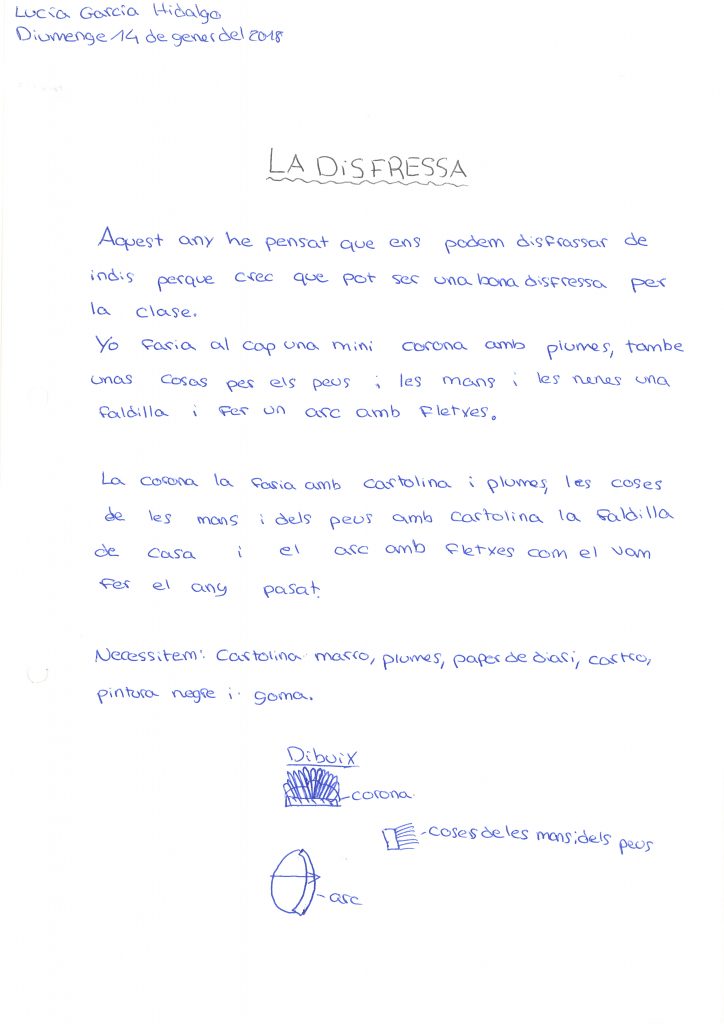 Lucía García Hidalgo
Diumenge 14 de gener del 2018
LA DiSFRESSA
Aquest any he pensat que ens podem disfrassar de
indis perque crec que pot ser una bona disfressa per
la clase.
Yo faria al cap una mini corona amb plumes, tambe
unas cosas per els peus i les mans i les nenes una
faldilla i fer un arc amb fletxes.
La corona la faria amb cartolina i plumes, les coses
de les mans i dels peus amb cartolina la faldilla
de casa i el arc amb fletxes com el vam
fer el any pasat.
Necessitem: Cartolina marro, plumes, paper de diari, cartro,
pintura negre i goma.
Dibuix
corona
coses de les mans i dels peus
arc